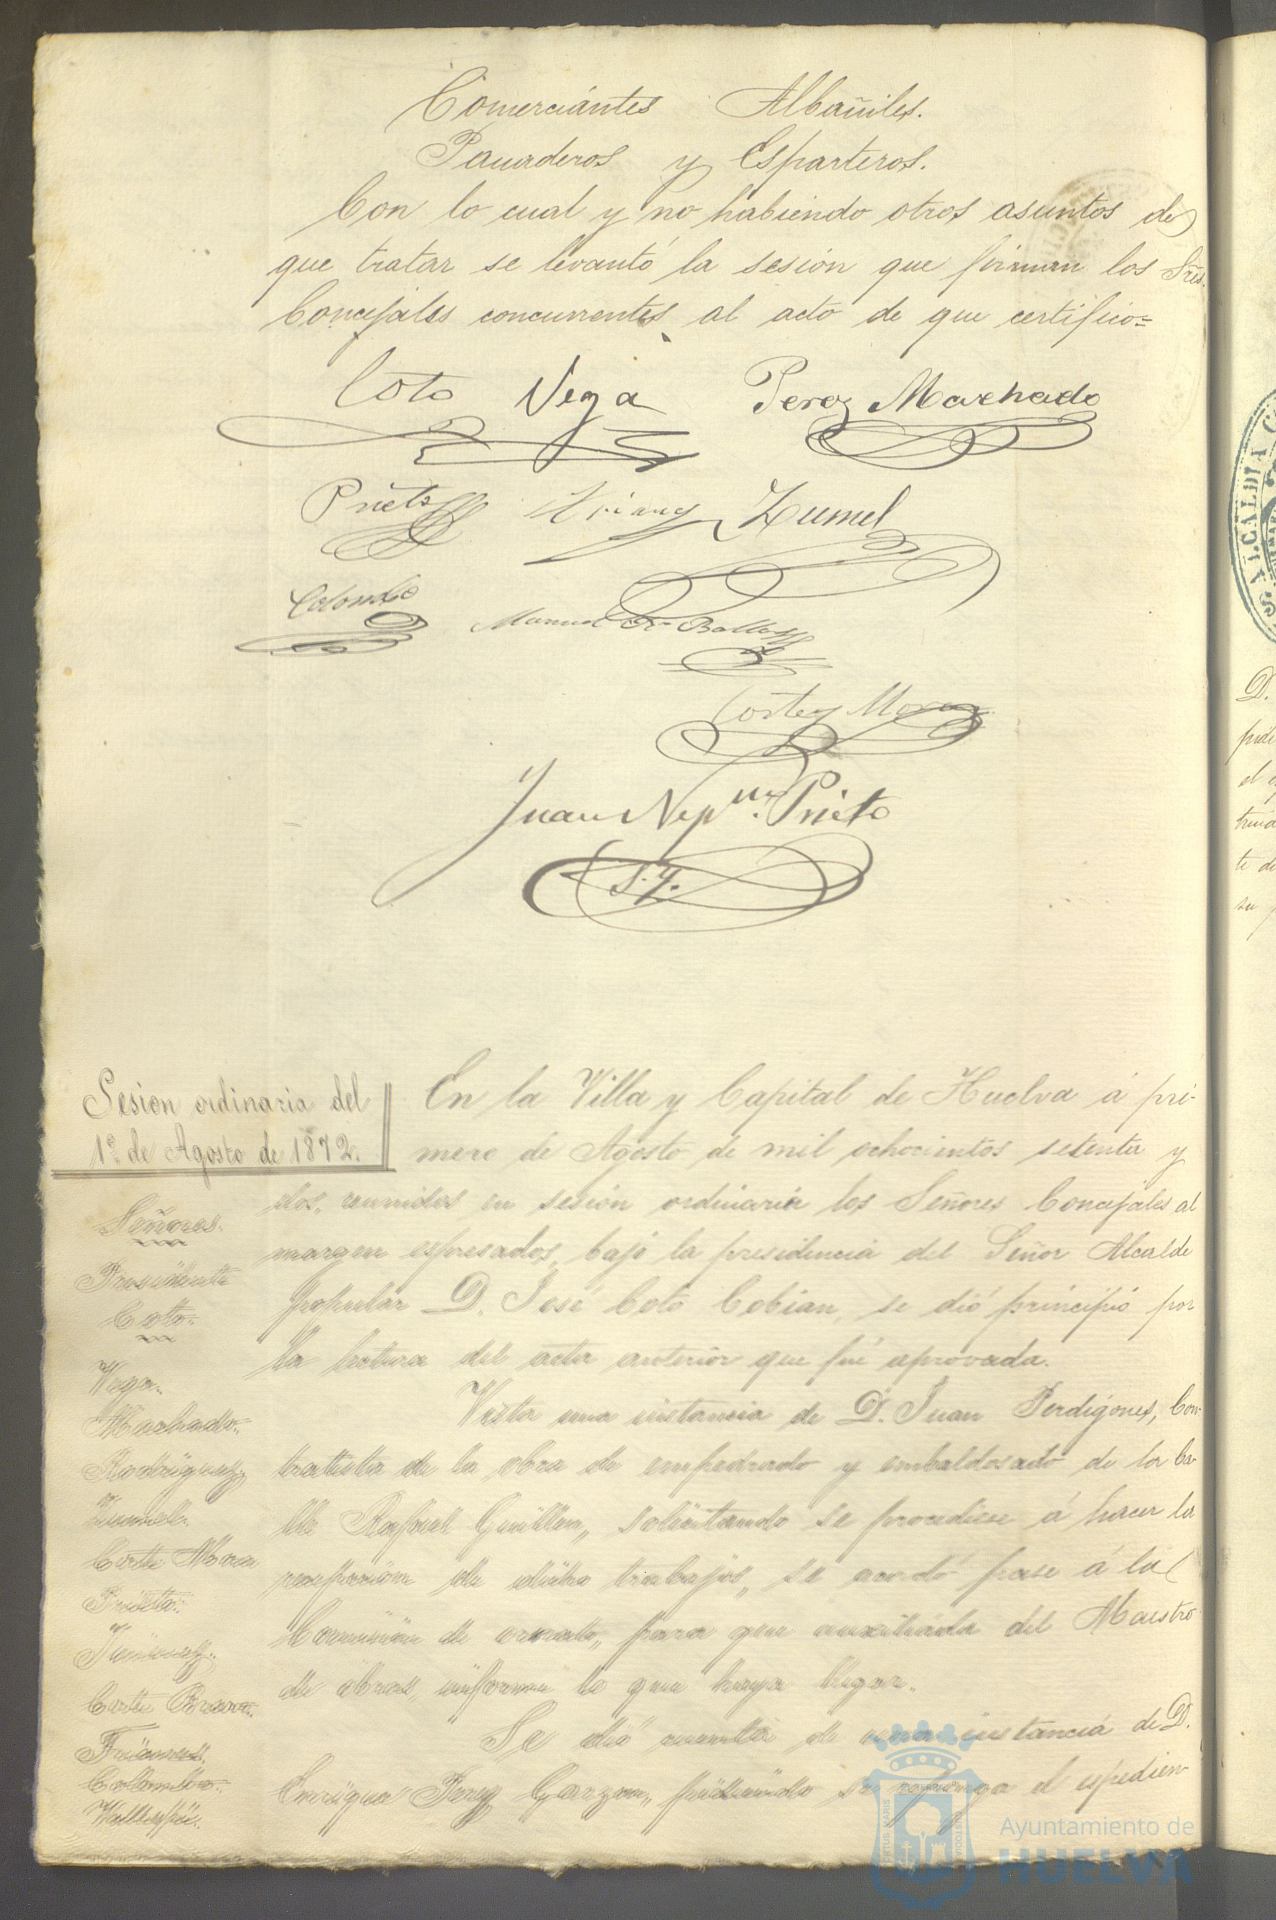 Comerciantes Albañiles.
Panaderos y Esparteros.
Con lo cual y no habiendo otros asuntos de
que tratar se levantó la sesión que firman los Sres.
Concejales concurrentes al acto de que certifico=
Coto Vega Perez Machado
Prieto Zumel
Colombo Manuel
Cortes Mora
Juan Nepno. Prieto
S. I.
Sesion ordinaria del
1º de Agosto de 1872.
En la Villa y Capital de Huelva á pri-
mero de Agosto de mil ochocientos setenta y
dos, reunidos en sesión ordinaria los Señores Concejales al
margen espresados, bajo la presidencia del Señor Alcalde
popular D. José Coto Cobian, se dió principio por
la letura del acta anterior que fué aprovada.
Vista una instancia de D. Juan Perdigones, Con-
tratista de la obra de empedrado y embaldosado de la Ca-
lle Rafael Guillen, solicitando se procediese á hacer la
recepcion de dichos trabajos, se acordó pase á la
Comision de ornato, para que auxiliada del Maestro
de obras, informe lo que haya lugar.
Se dió cuenta de una instancia de D.
Enrique Perez Garzon, pidiendo se reponga el espedien
Señores.
Presidente
Coto.
Vega.
Machado.
Rodriguez
Zumel.
Corte Mora
Prieto.
Jimenez.
Corte Bravo.
Colombo.
Ayuntamiento de
HUELVA
S. ALCALDIA C
D.